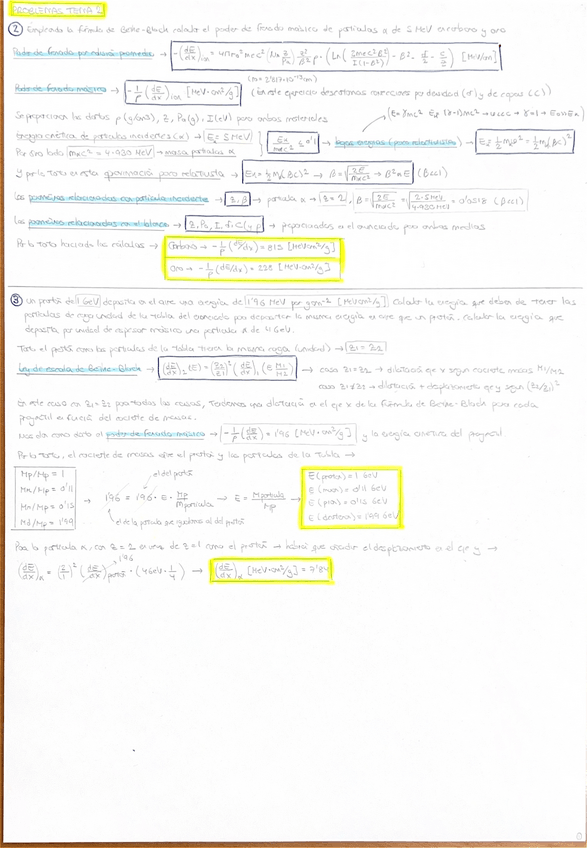 PROBLEMAS TEMA 2
② Empleando la fórmula de Bethe-Bloch calcular el poder de frenado másico de partículas α de 5 MeV en carbono y oro
Poder de frenado por colisión promedio → -(dE/dx)ion = 4π re² mec² (Na Z/PA) z²/β² ρ · (Ln(2mec²β²/I(1-β²)) - β² - δ/2 - C/Z) [MeV/cm]
(re = 2'817·10⁻¹³cm)
Poder de frenado másico → -1/ρ (dE/dx)ion [MeV·cm²/g] (En este ejercicio despreciamos correcciones por densidad (δ) y de capas (C))
Se proporcionan los datos ρ (g/cm3), Z, PA(g), I(eV) para ambos materiales
Energía cinética de partículas incidentes (α) → Ec = 5 MeV
Por otro lado mαc² = 4.930 MeV → masa partículas α
Y por lo tanto en esta aproximación → Ec =
Los parámetros relacionados con partícula incidente → z, β → partícula α → z = 2
Los parámetros relacionados con el blanco →
Por lo tanto haciendo los cálculos → Carbono → -1/ρ (dE/dx) = 815 [MeV·cm²/g]
Oro → -1/ρ (dE/dx) = 225 [MeV·cm²/g]
③ Un protón de 1 GeV deposita en el aire una energía de 1'96 MeV por gcm⁻² [MeV·cm²/g]. Calcular la energía que deben de tener las
partículas de carga unidad de la tabla del enunciado para depositar la misma energía en aire que un protón. Calcular la energía que
deposita por unidad de espesor másico una partícula α de 4 GeV.
Tanto el protón como las partículas de la tabla tienen la misma carga (unidad) → Z1 = Z2
Ley de escala de Bethe-Bloch → (dE/dx)₂ (E) = (Z2/Z1)² (dE/dx)₁ (E M1/M2) → caso Z1=Z2 → dilatación eje x según cociente masas M1/M2
caso Z1≠Z2 → dilatación + desplazamiento eje y según (Z2/Z1)²
En este caso con Z1=Z2 para todos los casos, tendremos una dilatación en el eje x de la fórmula de Bethe-Bloch para cada
proyectil en función del cociente de masas.
Nos dan como dato el poder de frenado másico → -1/ρ (dE/dx) = 1'96 [MeV·cm²/g] y la energía cinética del proyectil
Por lo tanto, el cociente de masas entre el protón y las partículas de la tabla →
Mp/Mp = 1
Mμ/Mp = 0'11
Mπ/Mp = 0'15
Md/Mp = 1'99
el del protón
→ 1'96 = 1'96 · E · Mp/Mpartícula → E = Mpartícula/Mp →
el de la partícula que igualamos al del protón
E (protón) = 1 GeV
E (muon) = 0'11 GeV
E (pion) = 0'15 GeV
E (deuterón) = 1'99 GeV
Para la partícula α, con Z = 2 en vez de Z = 1 como el protón → habrá que añadir el desplazamiento en el eje y →
1'96
(dE/dx)α = (2/1)² (dE/dx)protón · (4GeV · 1/4) → (dE/dx)α [MeV·cm²/g] = 7'84